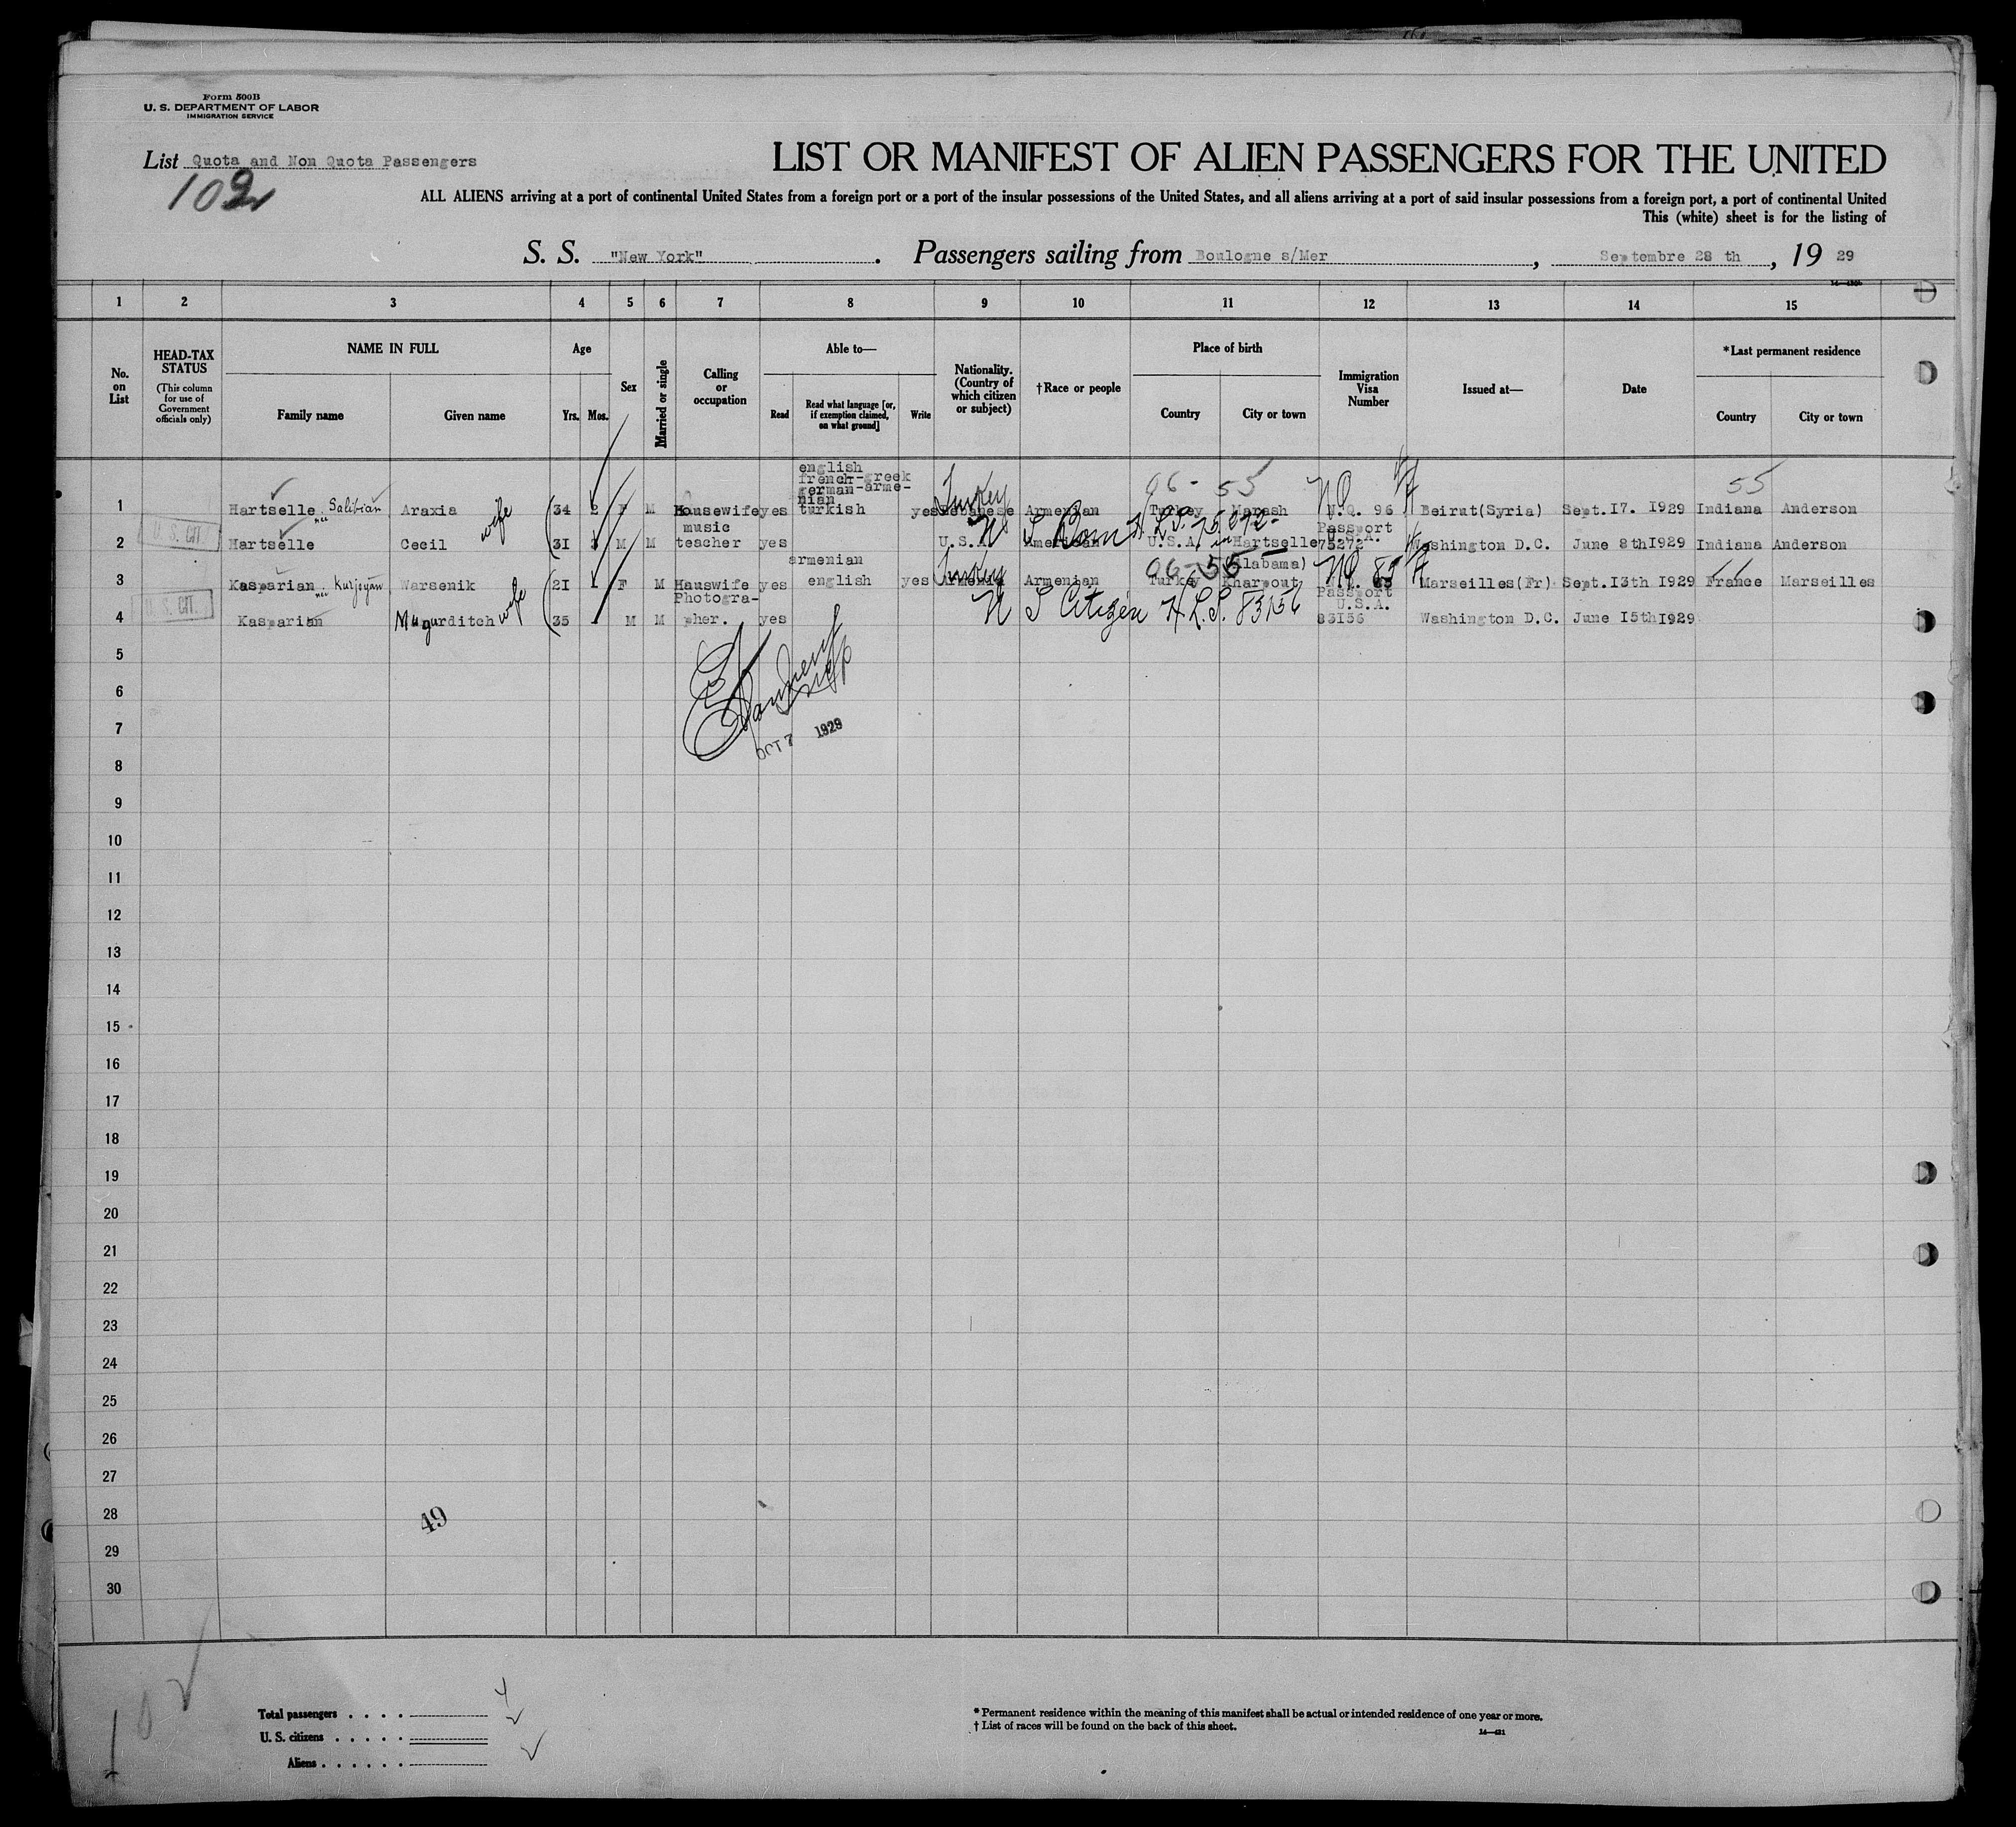 Form 500B
U. S. DEPARTMENT OF LABOR
IMMIGRATION SERVICE
List Quota and Non Quota Passengers
102
LIST OR MANIFEST OF ALIEN PASSENGERS FOR THE UNITED
ALL ALIENS arriving at a port of continental United States from a foreign port or a port of the insular possessions of the United States, and all aliens arriving at a port of said insular possessions from a foreign port, a port of continental United
This (white) sheet is for the listing of
S. S. "New York" . Passengers sailing from Boulogne s/Mer , Septembre 28 th , 19 29
1 2 3 4 5 6 7 8 9 10 11 12 13 14 15
No. on List
HEAD-TAX STATUS (This column for use of Government officials only)
NAME IN FULL
Family name Given name
Age
Yrs. Mos.
Sex
Married or single
Calling or occupation
Able to—
Read Read what language [or, if exemption claimed, on what ground] Write
Nationality. (Country of which citizen or subject)
†Race or people
Place of birth
Country City or town
Immigration Visa Number
Issued at—
Date
*Last permanent residence
Country City or town
english
french-greek
german-arme-
nian
06- 55 55
1 Hartselle née Salibian Araxia wife 34 2 F M Housewife yes turkish yes Lebanese Turkey Armenian Turkey Marash N.Q. 96 Beirut(Syria) Sept.17. 1929 Indiana Anderson
U. S. CIT. music Passport
U.S.A.
2 Hartselle Cecil 31 3 M M teacher yes U.S. American U.S.A. Hartselle 75272 Washington D.C. June 8th1929 Indiana Anderson
U S Born H.L.S. 75272-
armenian 06-55 (Alabama) NQ 85
3 Kasparian née Kurjeyan Warsenik wife 21 - F M Hauswife yes english yes Turkey Armenian Turkey Kharpout N.Q. 85 Marseilles(Fr) Sept.13th 1929 France Marseilles
U. S. CIT. Photogra- Passport
U.S.A.
4 Kasparian Mugurditch 35 - M M pher. yes U S Citizen H.L.S. 83156 83156 Washington D.C. June 15th1929
5
6
7
OCT 7 1929
8
9
10
11
12
13
14
15
16
17
18
19
20
21
22
23
24
25
26
27
28
49
29
30
102
Total passengers . . . . 4
U. S. citizens . . . . .
Aliens . . . . . .
* Permanent residence within the meaning of this manifest shall be actual or intended residence of one year or more.
† List of races will be found on the back of this sheet.
14—421